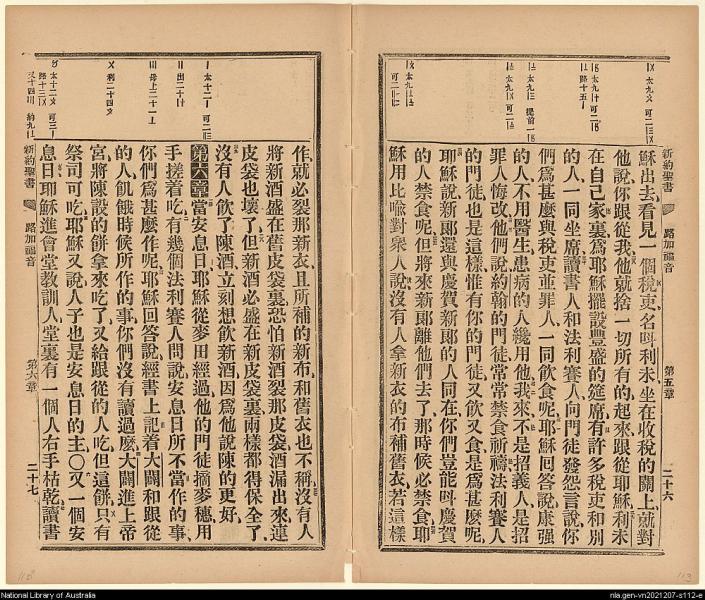 新約聖書
路加福音
第五章
二十六
穌出去看見一個稅吏名呌利未坐在收稅的關上就對
他說你跟從我他就捨一切所有的起來跟從耶穌利未
在自己家裏爲耶穌擺設豐盛的筵席有許多稅吏和別
的人一同坐席讀書人和法利賽人向門徒發怨言說你
們爲甚麽與稅吏並罪人一同飲食呢耶穌回答說康强
的人不用醫生患病的人纔用他我來不是招義人是招
罪人悔改他們說約翰的門徒常常禁食祈禱法利賽人
的門徒也是這樣惟有你的門徒又飲又食是爲甚麽呢
耶穌說新郞還與慶賀新郞的人同在你們豈能呌慶賀
的人禁食呢但將來新郞離他們去了那時候必禁食耶
穌用比喩對衆人說沒有人拿新衣的布補舊衣若這樣
作就必裂那新衣且所補的新布和舊衣也不稱沒有人
將新酒盛在舊皮袋裏恐怕新酒裂那皮袋酒漏出來連
皮袋也壞了但新酒必盛在新皮袋裏兩樣都得保全了
沒有人飲了陳酒立刻想飲新酒因爲他說陳的更好
第六章當安息日耶穌從麥田經過他的門徒摘麥穗用
手搓着吃有幾個法利賽人問說安息日所不當作的事
你們爲甚麽作呢耶穌回答說經書上記着大闢和跟從
的人飢餓時候所作的事你們沒有讀過麽大闢進上帝
宮將陳設的餅拿來吃了又給跟從的人吃但這餅只有
祭司可吃耶穌又說人子也是安息日的主〇又一個安
息日耶穌進會堂教訓人堂裏有一個人右手枯乾讀書
新約聖書
路加福音
第六章
二十七
National Library of Australia
nla.gen-vn2021207-s112-e